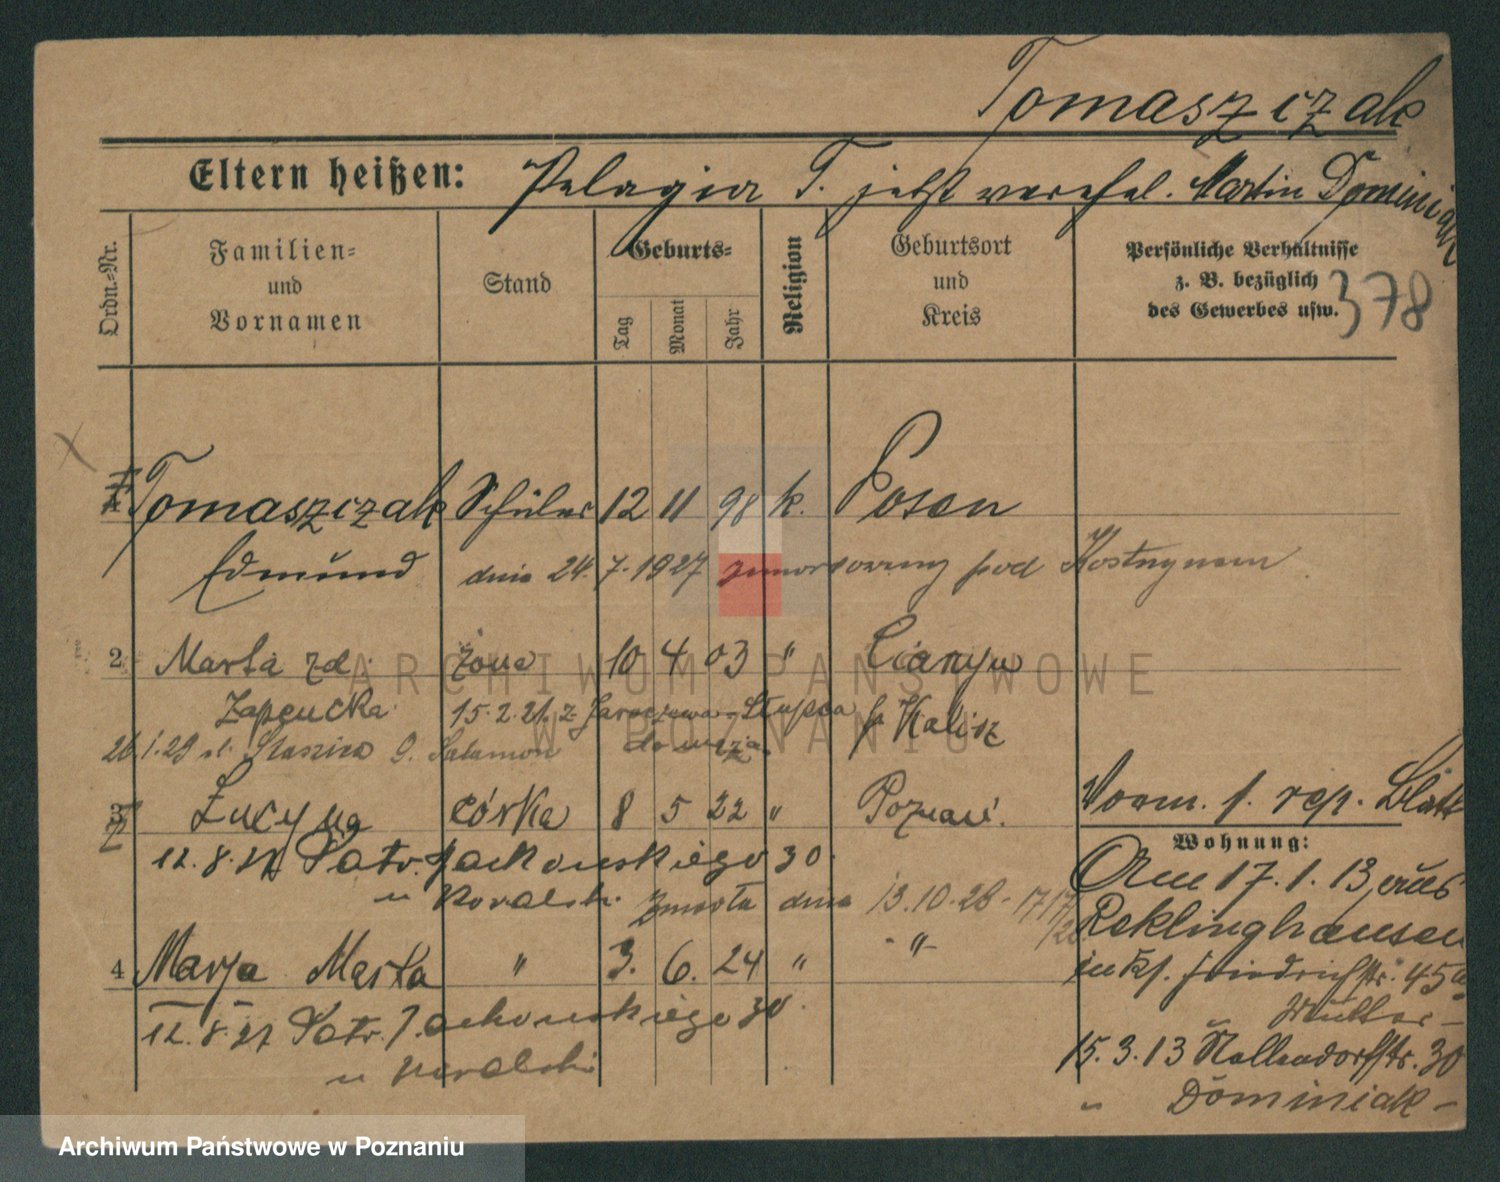 Tomaszczak
Eltern heißen: Pelagia T. jetzt verehel. Martin Dominiak
Ordn.=Nr.
Familien=
und
Vornamen
Stand
Geburts=
Tag
Monat
Jahr
Religion
Geburtsort
und
Kreis
Persönliche Verhältnisse
z. B. bezüglich
des Gewerbes usw.
378
1 Tomaszczak Schüler 12 11 98 k. Posen
Edmund dnia 24. 7. 1927 zamordowany pod Kostrzynem
2 Marta zd. żona 10 4 03 "
Zapłucka 15.2.21. z Jaroszewa - Słupca p Kalisz
26.1.29 Staszica 9. Salamon do męża.
3 Łucyna córka 8 5 22 " Poznań.
12.8.27 Patr. Jackowskiego 30.
u Kowalski. Zmarła dnia 13.10.28 -
4 Marja Marta " 3. 6. 24 " "
12.8.27 Patr. Jackowskiego 30.
u Kowalski
Vorm. s. rep. Blatt
Wohnung:
Am 17.1.13 aus
Reklinghausen
Friedrichstr. 45a
Mutter -
15.3.13 Nollendorfstr. 30
" Dominiak -
ARCHIWUM PAŃSTWOWE
W POZNANIU
Archiwum Państwowe w Poznaniu